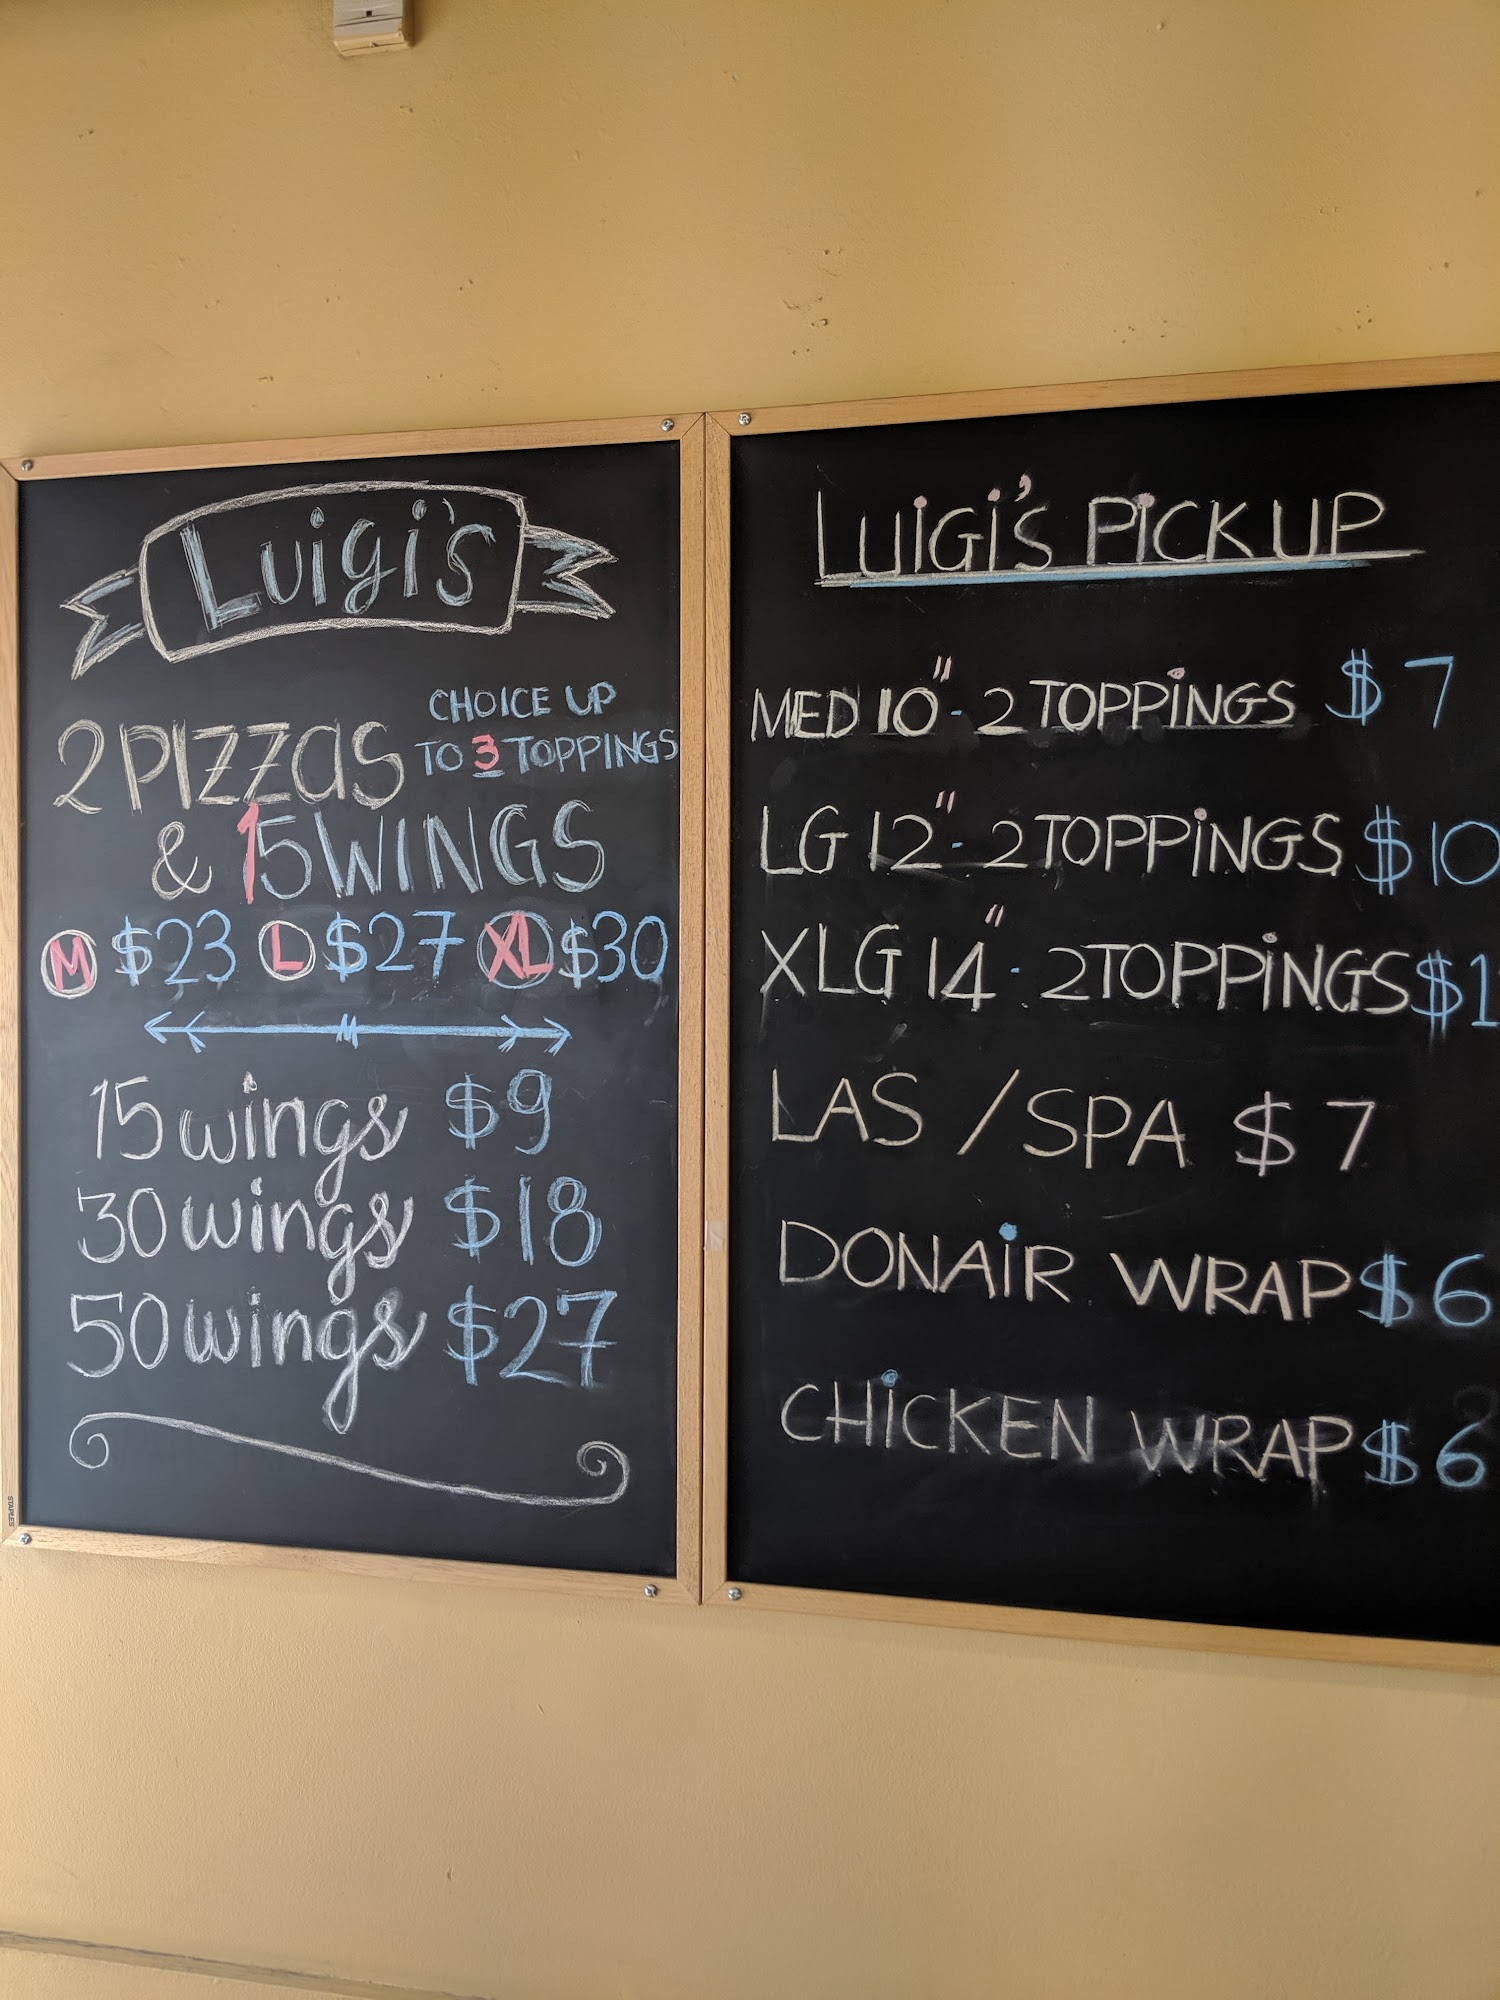 Luigi's
2 PIZZAS
CHOICE UP
TO 3 TOPPINGS
& 15 WINGS
M $23 L $27 XL $30
15 wings $9
30 wings $18
50 wings $27
STAPLES
LUIGI'S PICK UP
MED 10" - 2 TOPPINGS $7
LG 12" - 2 TOPPINGS $10
XLG 14" - 2 TOPPINGS $1
LAS / SPA $7
DONAIR WRAP $6
CHICKEN WRAP $6